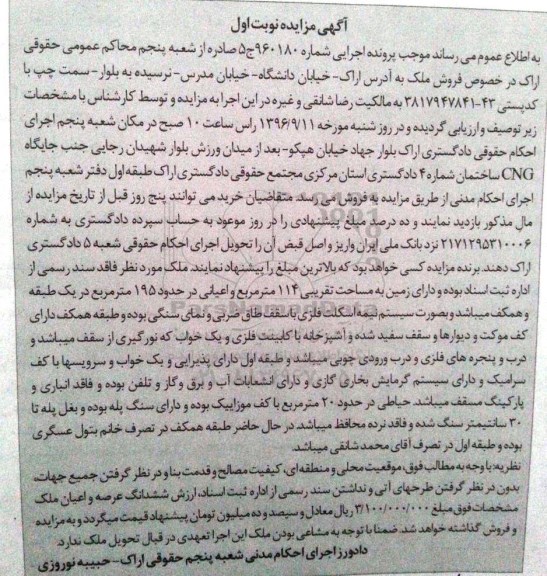 آگهی مزایده نوبت اول
به اطلاع عموم می رساند موجب پرونده اجرایی شماره ۹۶۰۱۸۰ج۵ صادره از شعبه پنجم محاکم عمومی حقوقی
اراک در خصوص فروش ملک به آدرس اراک- خیابان دانشگاه- خیابان مدرس- نرسیده به بلوار- سمت چپ با
کدپستی ۴۳-۳۸۱۷۹۴۷۸۴۱ به مالکیت رضا شانقی و غیره در این اجرا به مزایده و توسط کارشناس با مشخصات
زیر توصیف و ارزیابی گردیده و در روز شنبه مورخه ۱۳۹۶/۹/۱۱ راس ساعت ۱۰ صبح در مکان شعبه پنجم اجرای
احکام حقوقی دادگستری اراک بلوار جهاد خیابان هپکو- بعد از میدان ورزش بلوار شهیدان رجایی جنب جایگاه
CNG ساختمان شماره ۴ دادگستری استان مرکزی مجتمع حقوقی دادگستری اراک طبقه اول دفتر شعبه پنجم
اجرای احکام مدنی از طریق مزایده به فروش می رسد. متقاضیان خرید می توانند پنج روز قبل از تاریخ مزایده از
مال مذکور بازدید نمایند و ده درصد مبلغ پیشنهادی را در روز موعود به حساب سپرده دادگستری به شماره
۲۱۷۱۲۹۵۳۱۰۰۰۶ نزد بانک ملی ایران واریز و اصل قبض آن را تحویل اجرای احکام حقوقی شعبه ۵ دادگستری
اراک دهند. برنده مزایده کسی خواهد بود که بالاترین مبلغ را پیشنهاد نمایند. ملک مورد نظر فاقد سند رسمی از
اداره ثبت اسناد بوده و دارای زمین به مساحت تقریبی ۱۱۴ مترمربع و اعیانی در حدود ۱۹۵ مترمربع در یک طبقه
و همکف میباشد و بصورت سیستم نیمه اسکلت فلزی با سقف طاق ضربی و نمای سنگی بوده و طبقه همکف دارای
کف موکت و دیوارها و سقف سفید شده و آشپزخانه با کابینت فلزی و یک خواب که نورگیری از سقف میباشد و
درب و پنجره های فلزی و درب ورودی چوبی میباشد و طبقه اول دارای پذیرایی و یک خواب و سرویسها با کف
سرامیک و دارای سیستم گرمایش بخاری گازی و دارای انشعابات آب و برق و گاز و تلفن بوده و فاقد انباری و
پارکینگ مسقف میباشد. حیاطی در حدود ۲۰ مترمربع با کف موزاییک بوده و دارای سنگ پله بوده و بغل پله تا
۳۰ سانتیمتر سنگ شده و فاقد نرده محافظ میباشد. در حال حاضر طبقه همکف در تصرف خانم بتول عسگری
بوده و طبقه اول در تصرف آقای محمد شانقی میباشد.
نظریه: با توجه به مطالب فوق، موقعیت محلی و منطقه ای، کیفیت مصالح و قدمت بنا و در نظر گرفتن جمیع جهات،
بدون در نظر گرفتن طرحهای آتی و نداشتن سند رسمی از اداره ثبت اسناد، ارزش ششدانگ عرصه و اعیان ملک
مشخصات فوق مبلغ ۳/۱۰۰/۰۰۰/۰۰۰ ریال معادل و سیصد و ده میلیون تومان پیشنهاد قیمت میگردد و به مزایده
و فروش گذاشته خواهد شد. ضمنا با توجه به مشاعی بودن ملک این اجرا تعهدی در قبال تحویل ملک ندارد.
دادورز اجرای احکام مدنی شعبه پنجم حقوقی اراک- حبیبه نوروزی